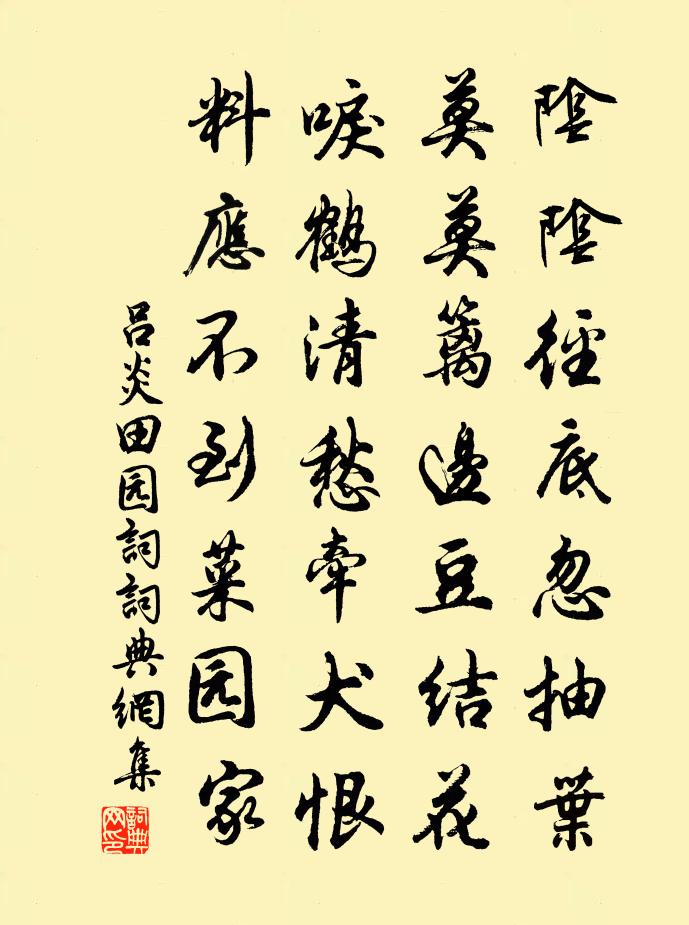 陰陰徑底忽抽葉
莫莫篱邊豆結花
唳鶴清愁牽犬恨
料應不到菜园家
吕炎田园詞詞典網集
詞典網印